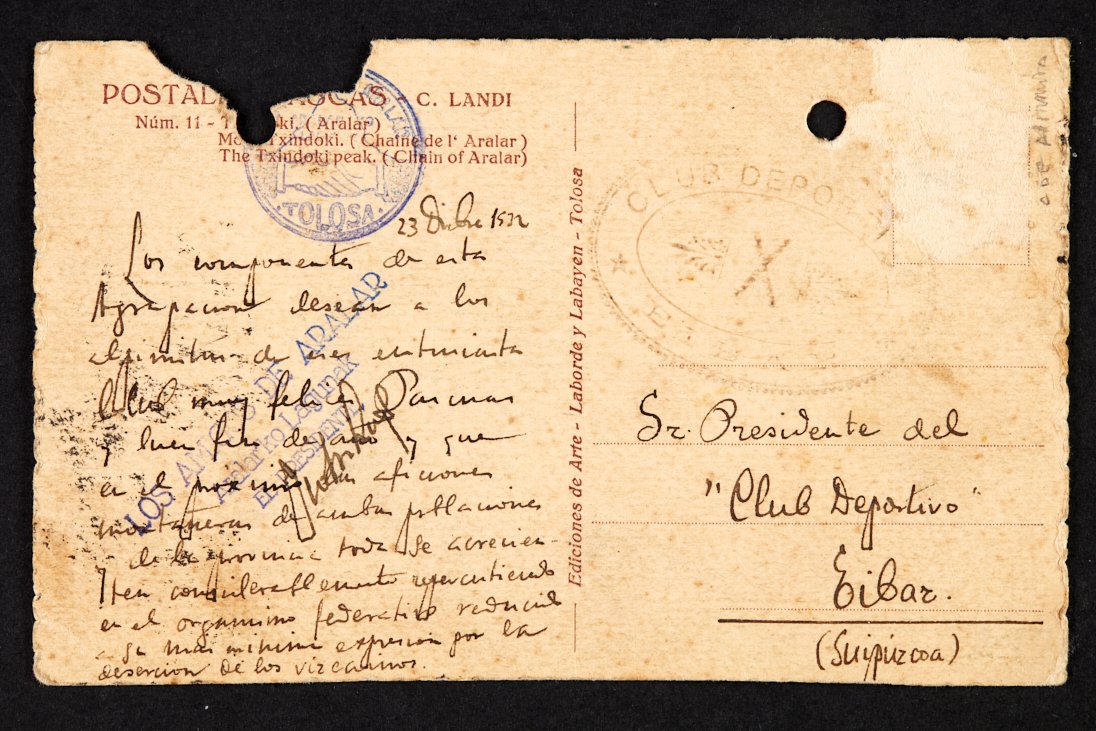 POSTAL VASCAS - C. LANDI
Núm. 11 - T ki. (Aralar)
Mo Txindoki. (Chaine de l' Aralar)
The Txindoki peak. (Chain of Aralar)
TOLOSA
23 Dicbre 1932
Los componentes de esta
Agrupacion desean a los
alpinistas de ese entusiasta
Club muy felices Pascuas
y buen fin de año y que
en el proximo las aficiones
montañeras de ambas poblaciones
y de la provincia toda se acrecien-
ten considerablemente repercutiendo
en el organismo federativo reducido
a su mas minima expresion por la
desercion de los vizcainos.
LOS AMIGOS DE ARALAR
Aralar'ko Lagunak
EL PRESIDENTE
Ediciones de Arte - Laborde y Labayen - Tolosa
CLUB DEPO
Sr. Presidente del
"Club Deportivo"
Eibar.
(Guipúzcoa)